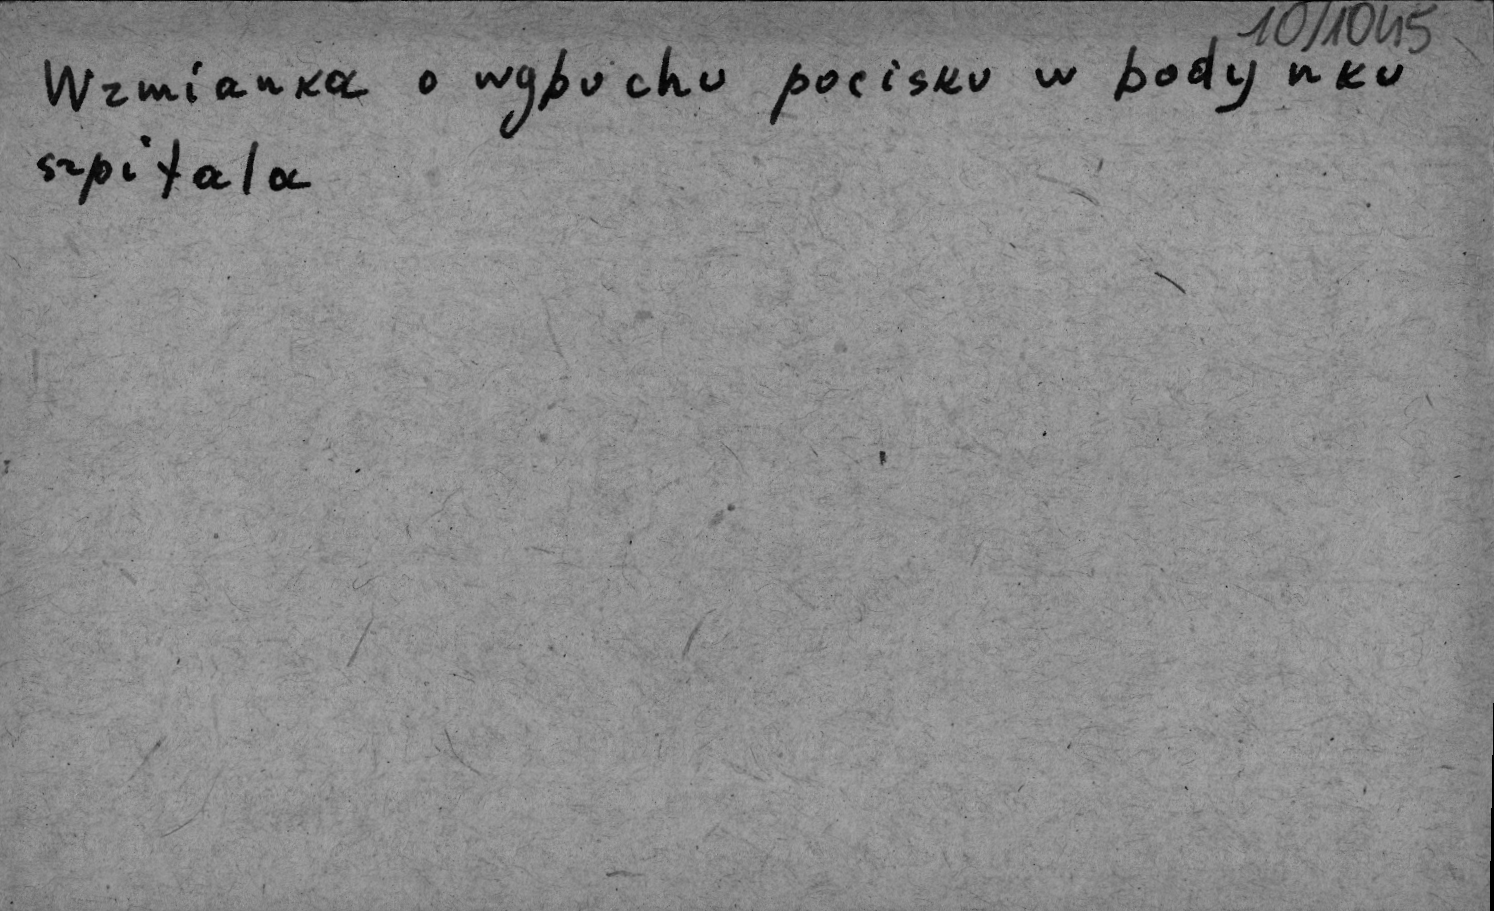 10/1045
Wzmianka o wybuchu pocisku w budynku
szpitala